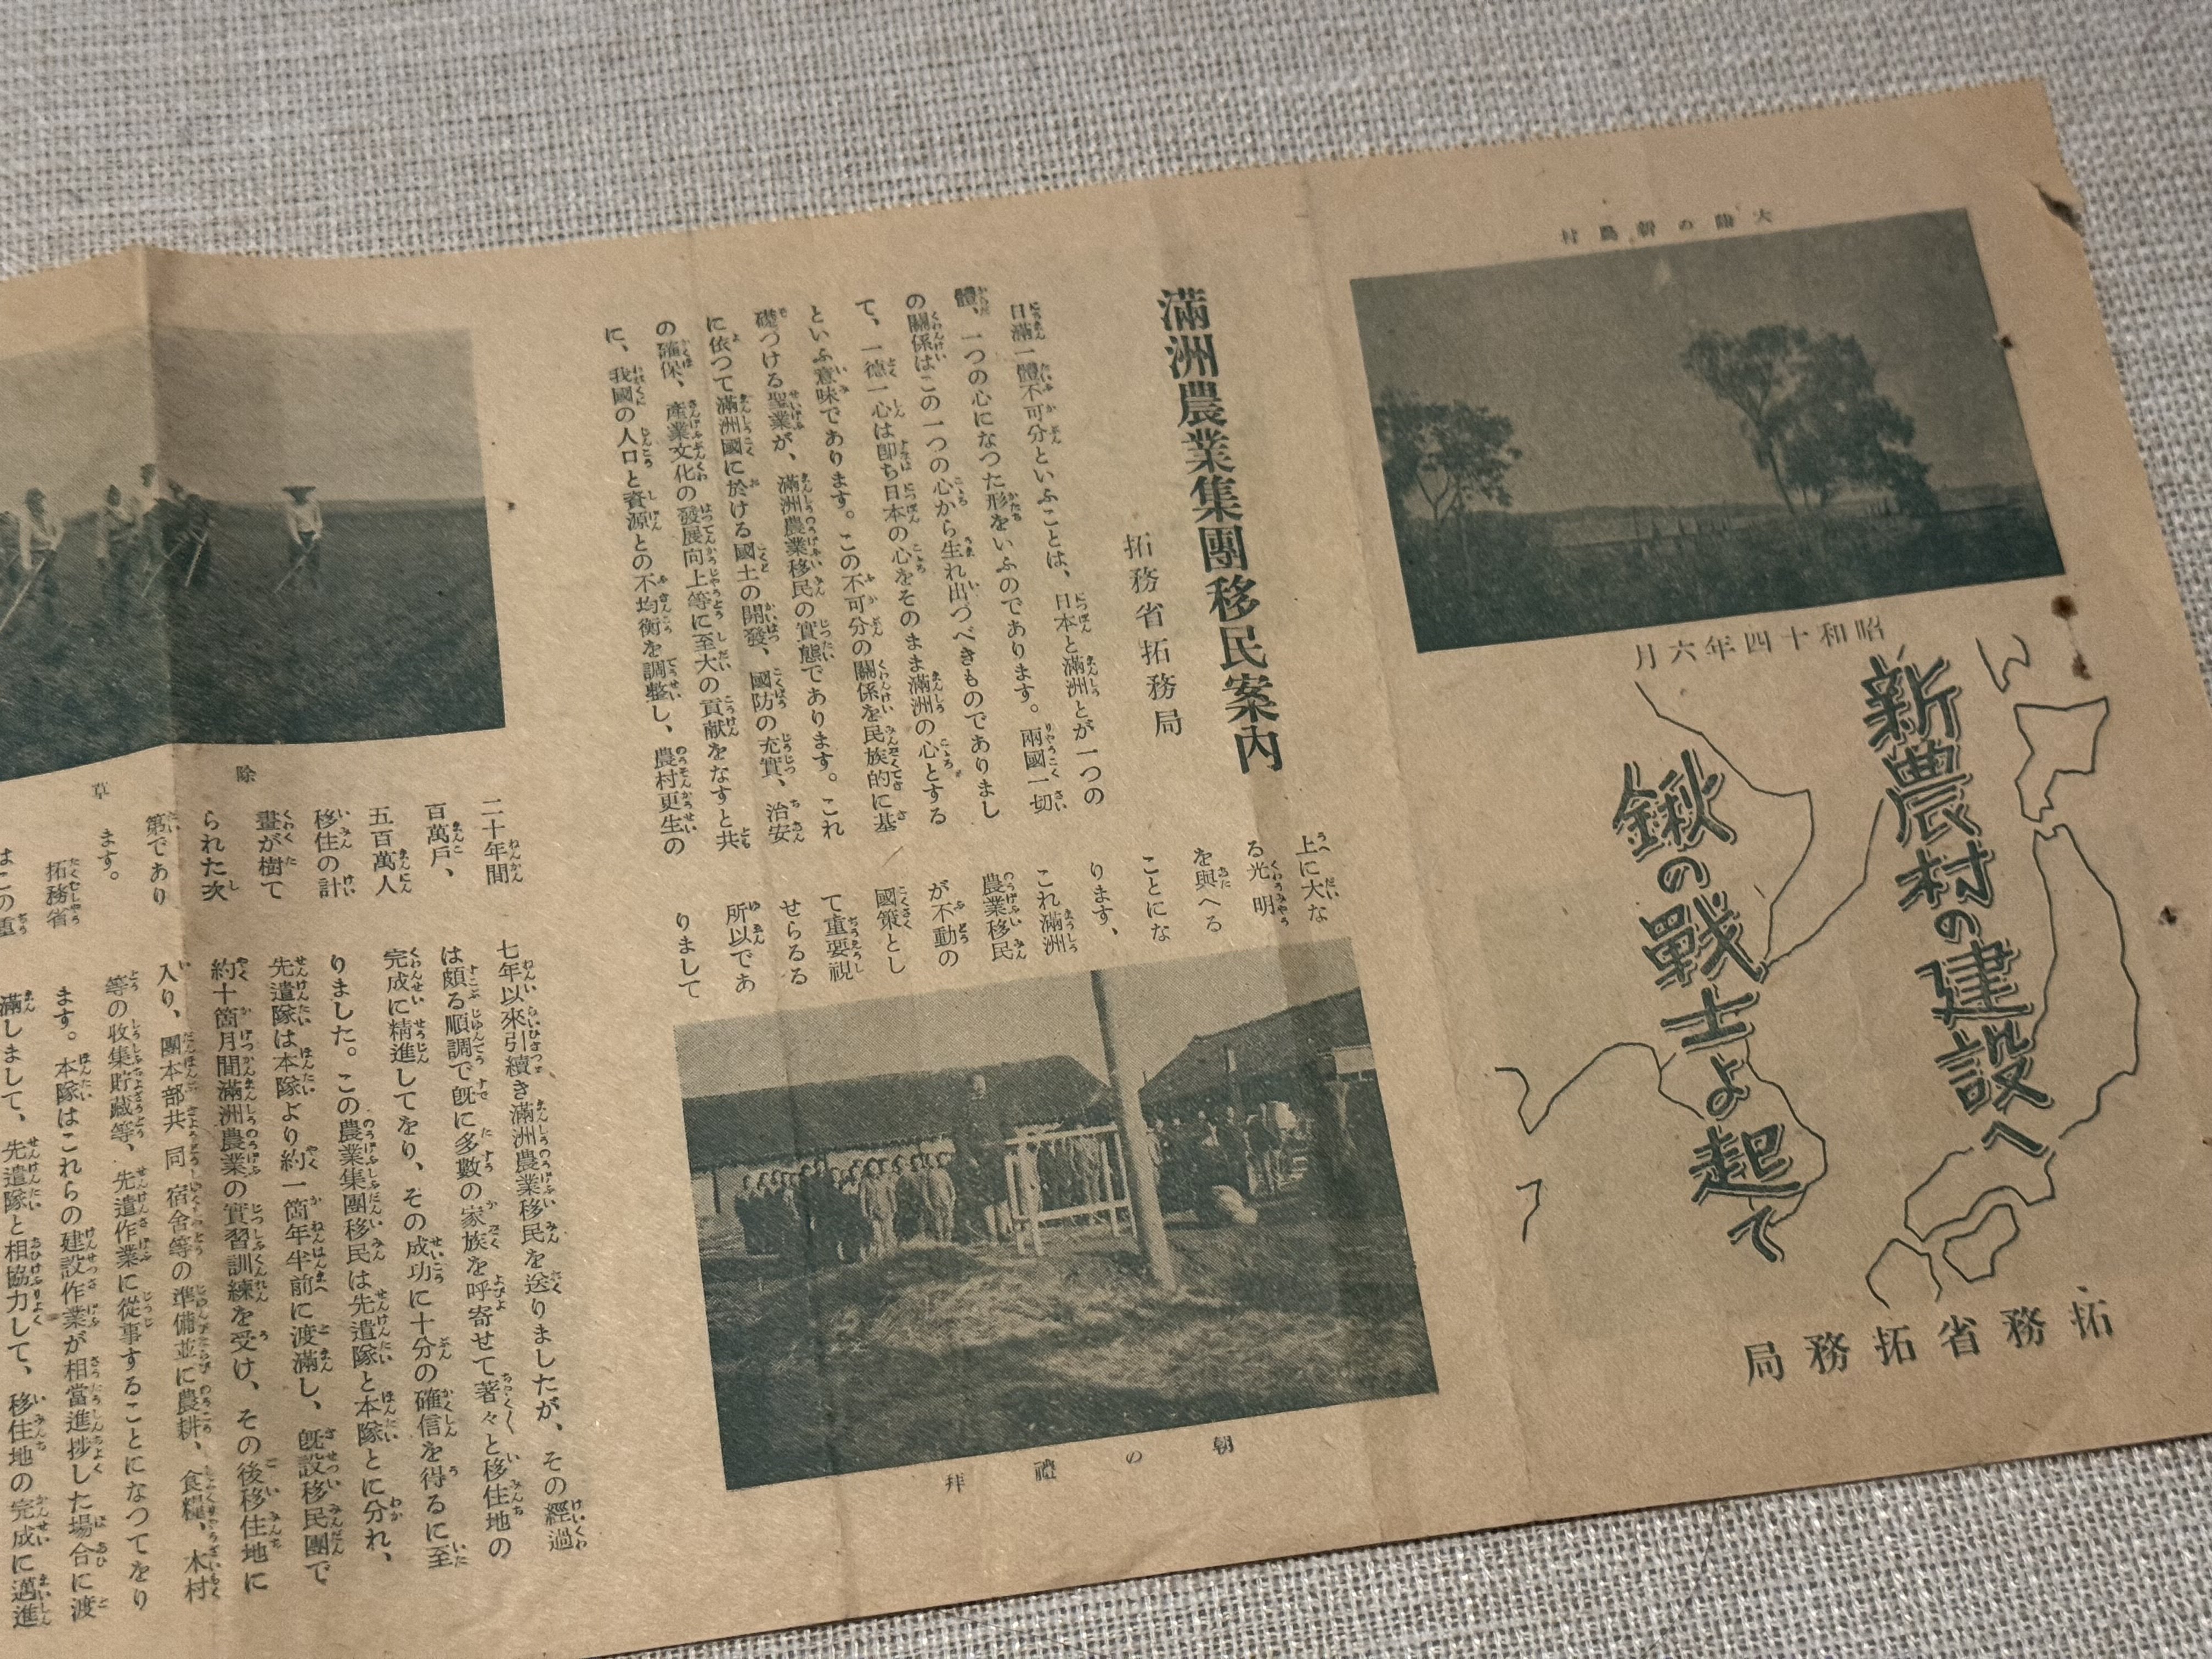 大陸の新農村
昭和十四年六月
新農村の建設へ
鍬の戰士よ起て
拓務省拓務局
滿洲農業集團移民案内
拓務省拓務局
日滿一體不可分といふことは、日本と滿洲とが一つの
體、一つの心になつた形をいふのであります。兩國一切
の關係はこの一つの心から生れ出づべきものでありまし
て、一德一心は卽ち日本の心をそのまま滿洲の心とする
といふ意味であります。この不可分の關係を民族的に基
礎づける聖業が、滿洲農業移民の實態であります。これ
に依つて滿洲國に於ける國土の開發、國防の充實、治安
の確保、產業文化の發展向上等に至大の貢献をなすと共
に、我國の人口と資源との不均衡を調整し、農村更生の
上に大な
る光明
を與へる
ことにな
ります、
これ滿洲
農業移民
が不動の
國策とし
て重要視
せらるる
所以であ
りまして
朝の禮拜
除草
二十年間
百萬戶、
五百萬人
移住の計
畫が樹て
られた次
第であり
ます。
拓務省
はこの重
七年以來引續き滿洲農業移民を送りましたが、その經過
は頗る順調で旣に多數の家族を呼寄せて著々と移住地の
完成に精進してをり、その成功に十分の確信を得るに至
りました。この農業集團移民は先遣隊と本隊とに分れ、
先遣隊は本隊より約一箇年半前に渡滿し、旣設移民團で
約十箇月間滿洲農業の實習訓練を受け、その後移住地に
入り、團本部共同宿舍等の準備並に農耕、食糧、木材
等の收集貯藏等、先遣作業に從事することになつてをり
ます。本隊はこれらの建設作業が相當進捗した場合に渡
滿しまして、先遣隊と相協力して、移住地の完成に邁進